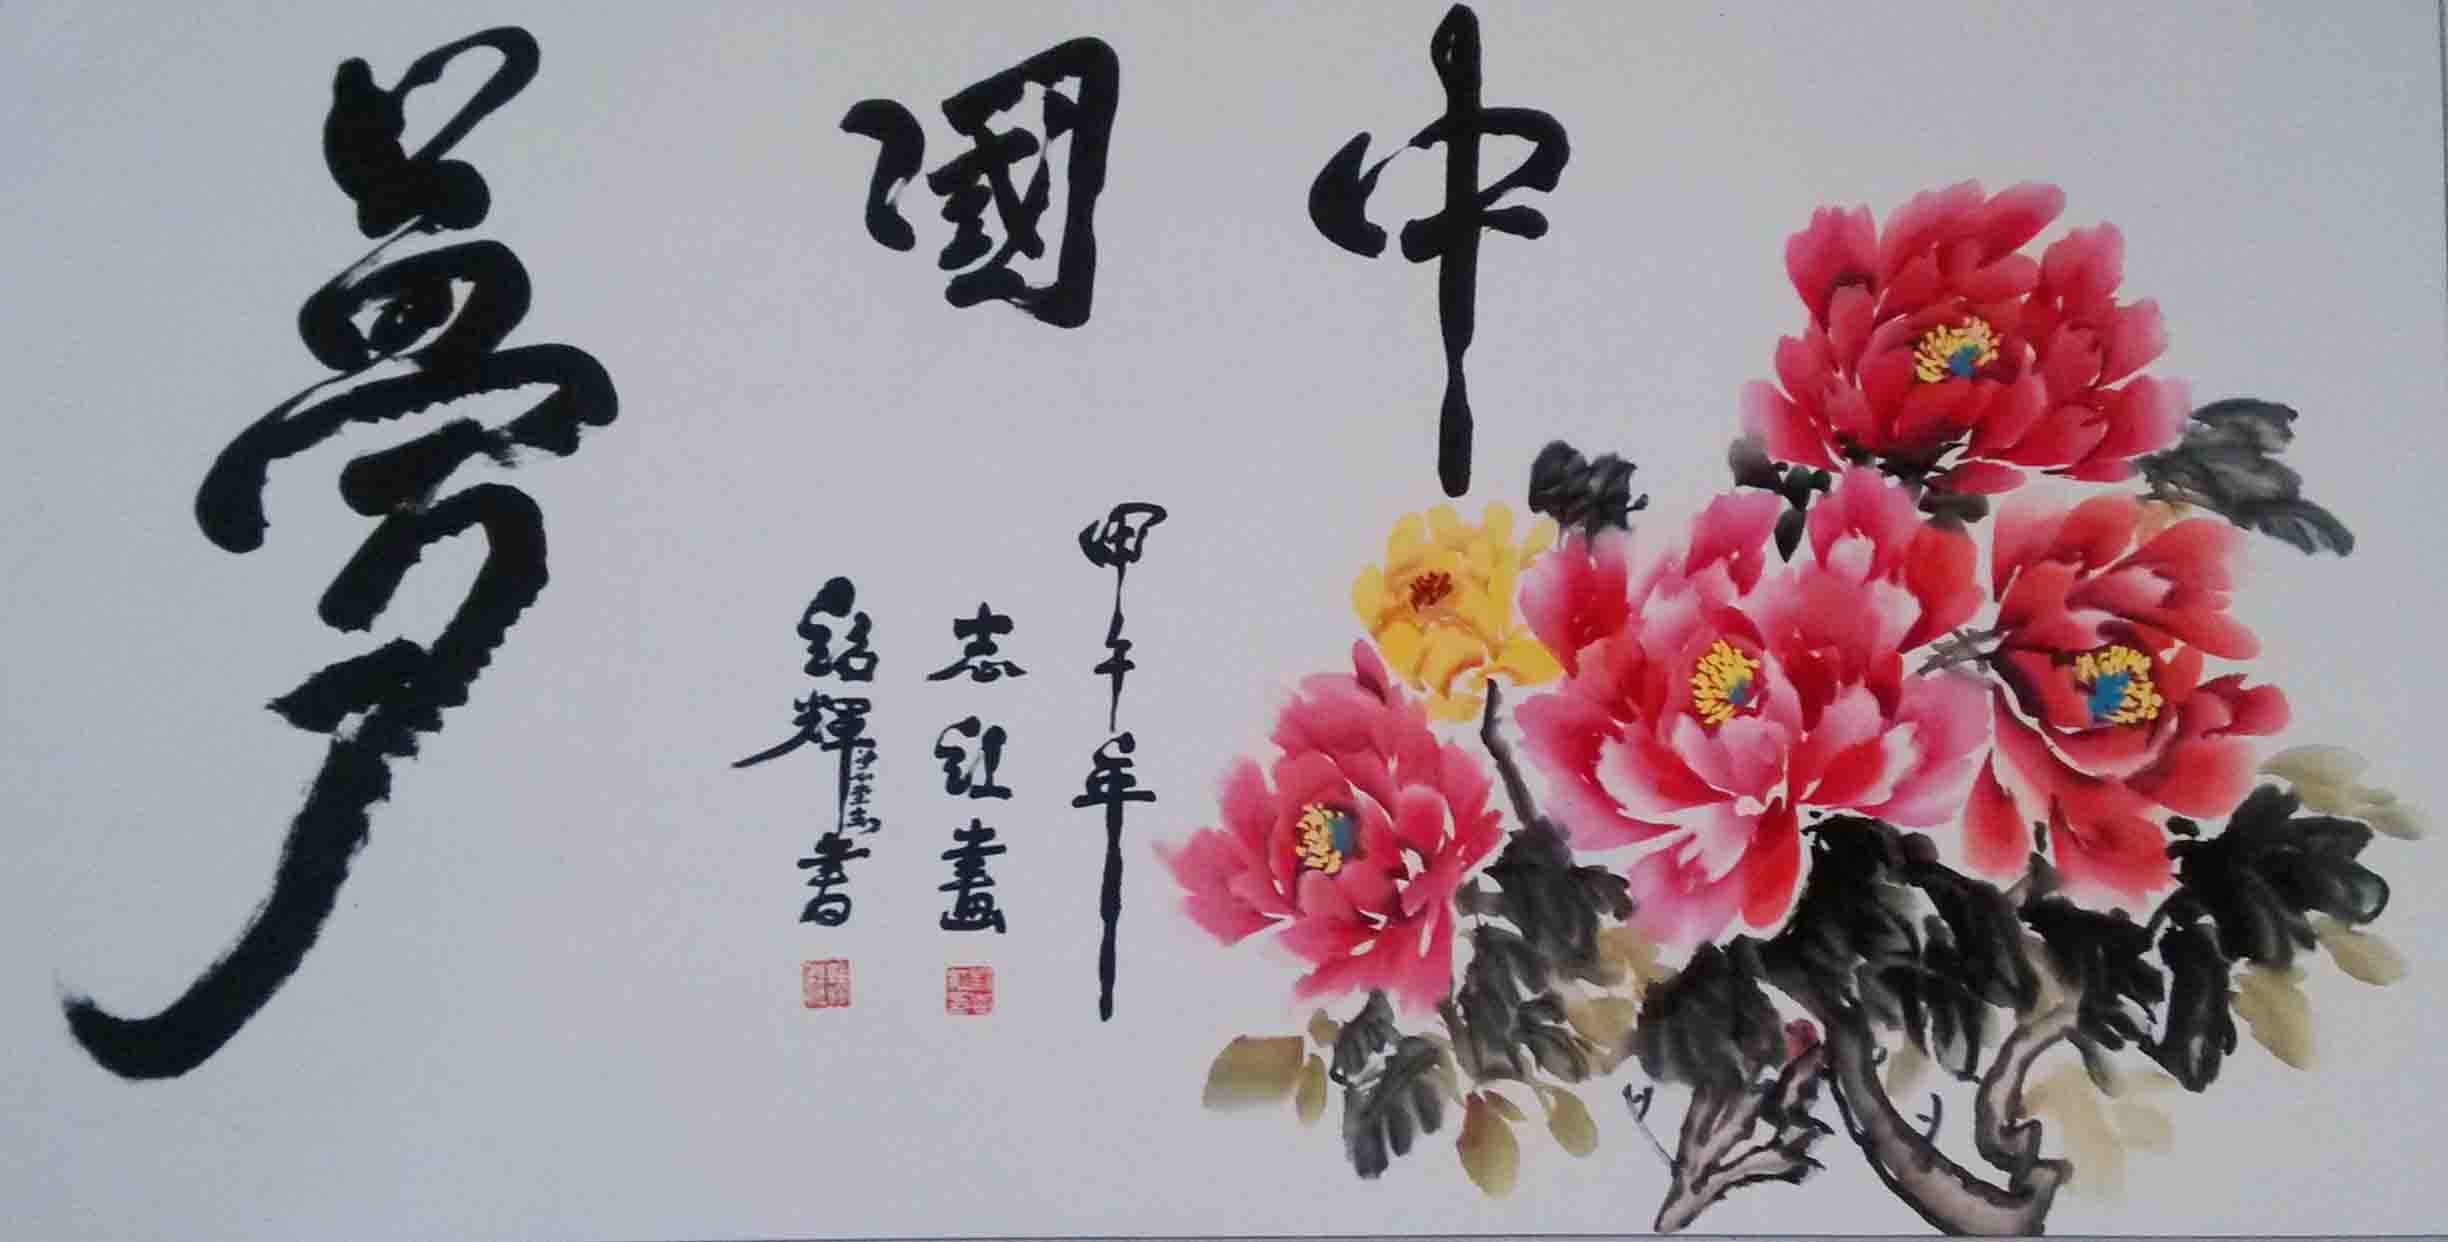 中國夢
甲午年
志红畫
绍輝書